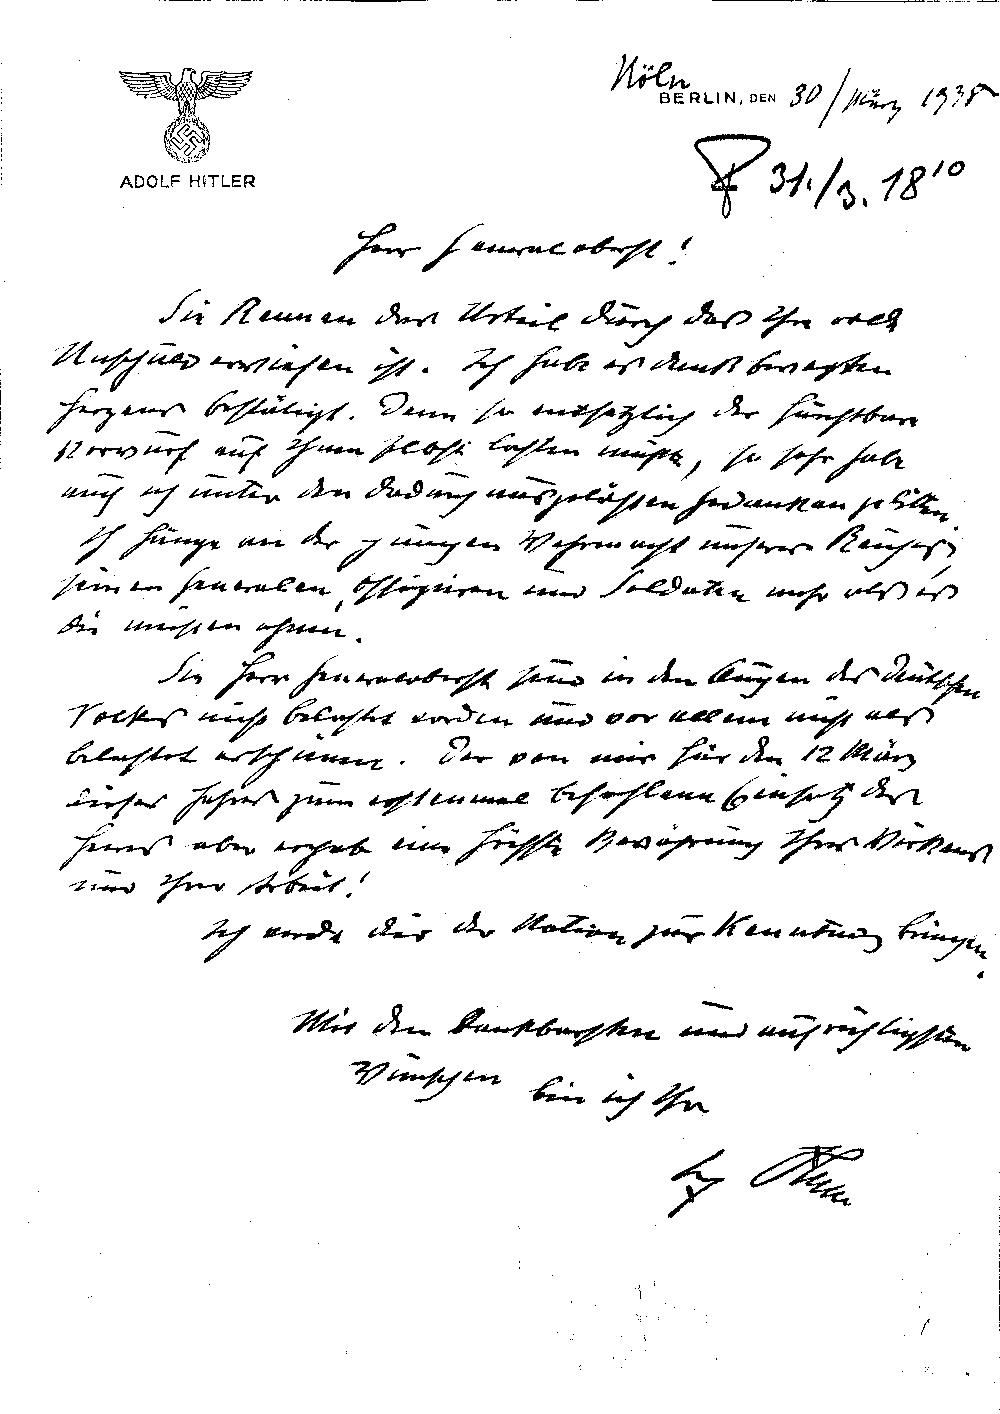 ADOLF HITLER
Köln
BERLIN, DEN 30/März 1938
31./3. 18¹⁰
Herr Generaloberst!
Sie kennen das Urteil durch das Ihre volle
Unschuld erwiesen ist. Ich habe es dankbewegten
Herzens bestätigt. Denn so entsetzlich der furchtbare
Vorwurf auf Ihnen selbst lasten mußte, so sehr habe
auch ich unter den dadurch ausgelösten Gedanken gelitten.
Ich hänge an der jungen Wehrmacht unseres Reiches,
seinen Generalen, Offizieren und Soldaten mehr als es
die meisten ahnen.
Sie Herr Generaloberst sind in den Augen des Deutschen
Volkes nicht belastet worden und vor allem nicht als
belastet erschienen. Der von mir für den 12 März
dieses Jahres zum erstenmal befohlene Einsatz des
Heeres aber ergab eine höchste Bewährung Ihres Wirkens
und Ihrer Arbeit!
Ich werde dies der Nation zur Kenntnis bringen.
Mit den dankbarsten und aufrichtigsten
Wünschen
bin ich Ihr